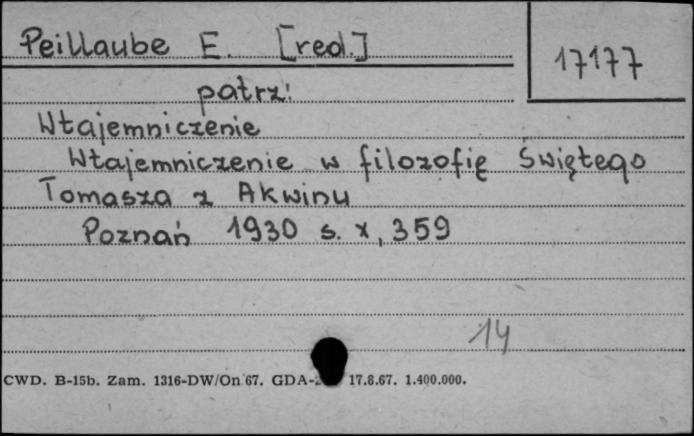 Peillaube E. [red.]
17177
patrz:
Wtajemniczenie
Wtajemniczenie w filozofię Świętego
Tomasza z Akwinu
Poznań 1930 s. x, 359
14
CWD. B-15b. Zam. 1316-DW/On 67. GDA- 17.8.67. 1.400.000.